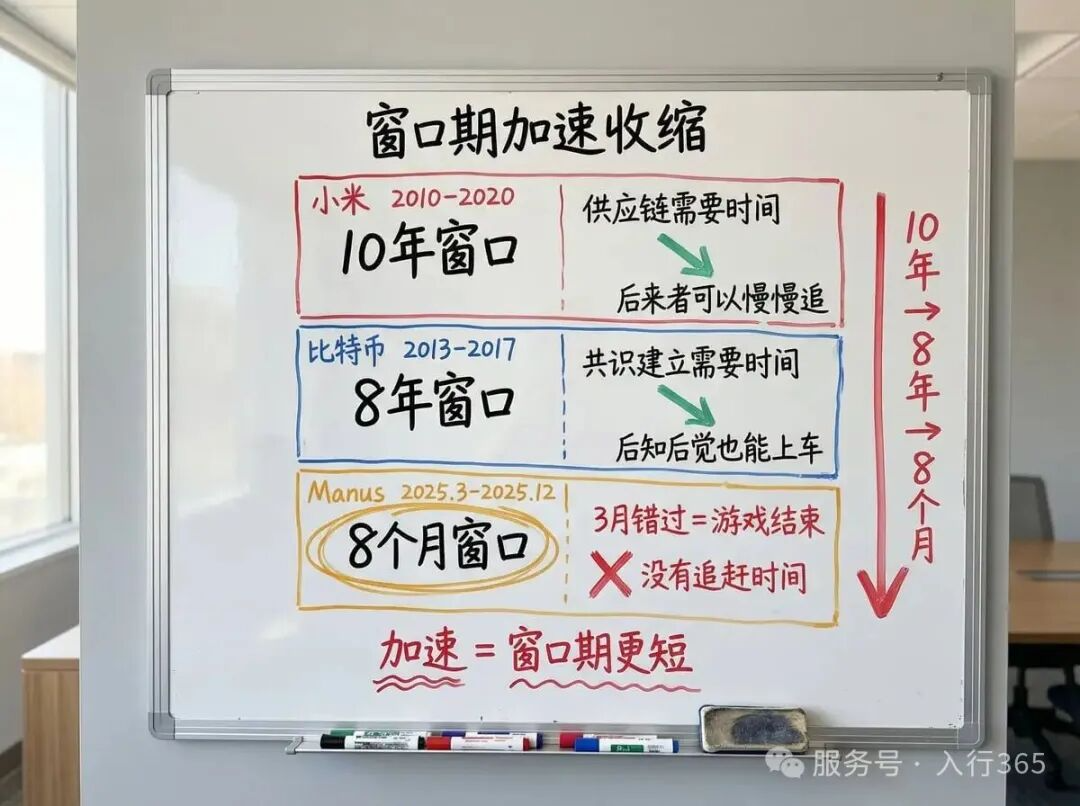 窗口期加速收缩
小米 2010-2020
10年窗口
供应链需要时间
后来者可以慢慢追
比特币 2013-2017
8年窗口
共识建立需要时间
后知后觉也能上车
Manus 2025.3-2025.12
8个月窗口
3月错过=游戏结束
没有追赶时间
10年→8年→8个月
加速=窗口期更短
服务号·入行365